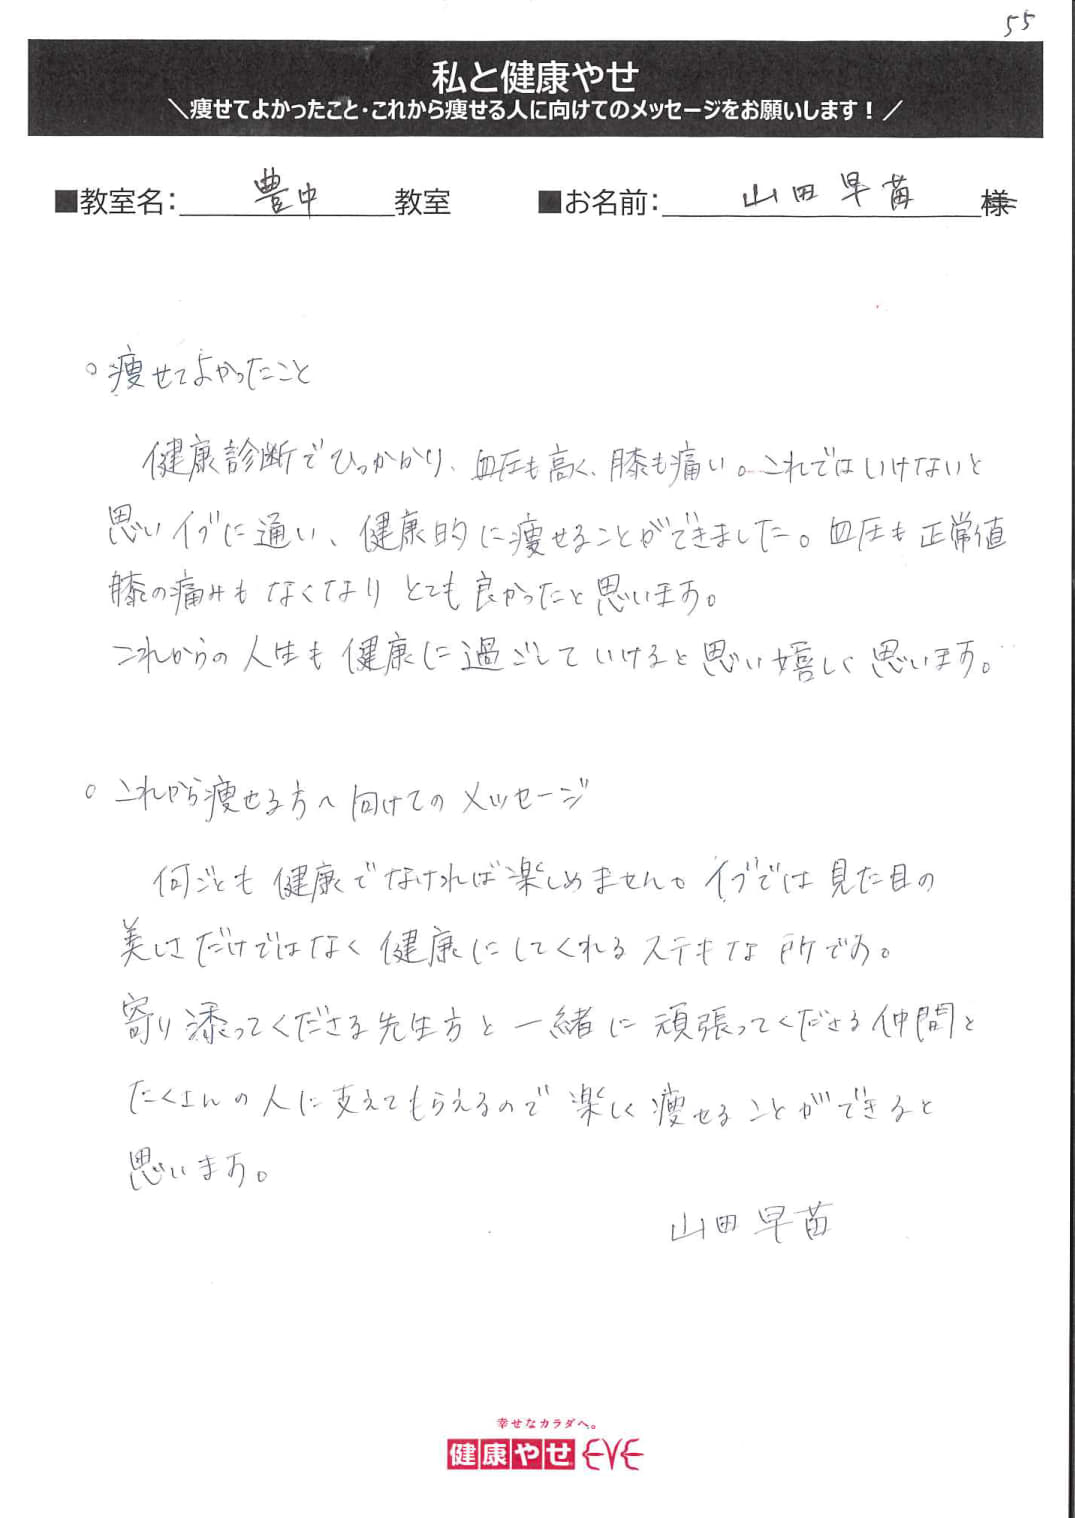 55
私と健康やせ
＼痩せてよかったこと・これから痩せる人に向けてのメッセージをお願いします！／
■教室名：豊中教室 ■お名前：山田早苗様
○痩せてよかったこと
健康診断でひっかかり、血圧も高く、膝も痛い。これではいけないと
思いイブに通い、健康的に痩せることができました。血圧も正常値
膝の痛みもなくなりとても良かったと思います。
これからの人生も健康に過ごしていけると思い嬉しく思います。
○これから痩せる方へ向けてのメッセージ
何ごとも健康でなければ楽しめません。イブでは見た目の
美しさだけではなく健康にしてくれるステキな所です。
寄り添ってくださる先生方と一緒に頑張ってくださる仲間と
たくさんの人に支えてもらえるので楽しく痩せることができると
思います。
山田早苗
幸せなカラダへ。
健康やせ EVE